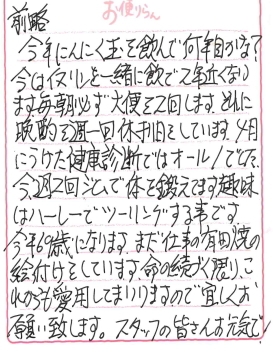 お便りらん
前略
今年にんにく玉を飲んで何年目かな?
今はイヌリンと一緒に飲で2年立くらい
ます毎朝必ず大便を2回します。それに
晩酌を週一回休刊日をしています。4月
にうけた健康診断ではオール1でした。
今、週2回ジムで体を鍛えてます趣味
はハーレーでツーリングする事です。
今年69歳になります。まだ仕事の有田焼の
絵付けをしています。命の続く限り、こ
れからも愛用してまいりますので宜しくお
願い致します。スタッフの皆さんお元気で!